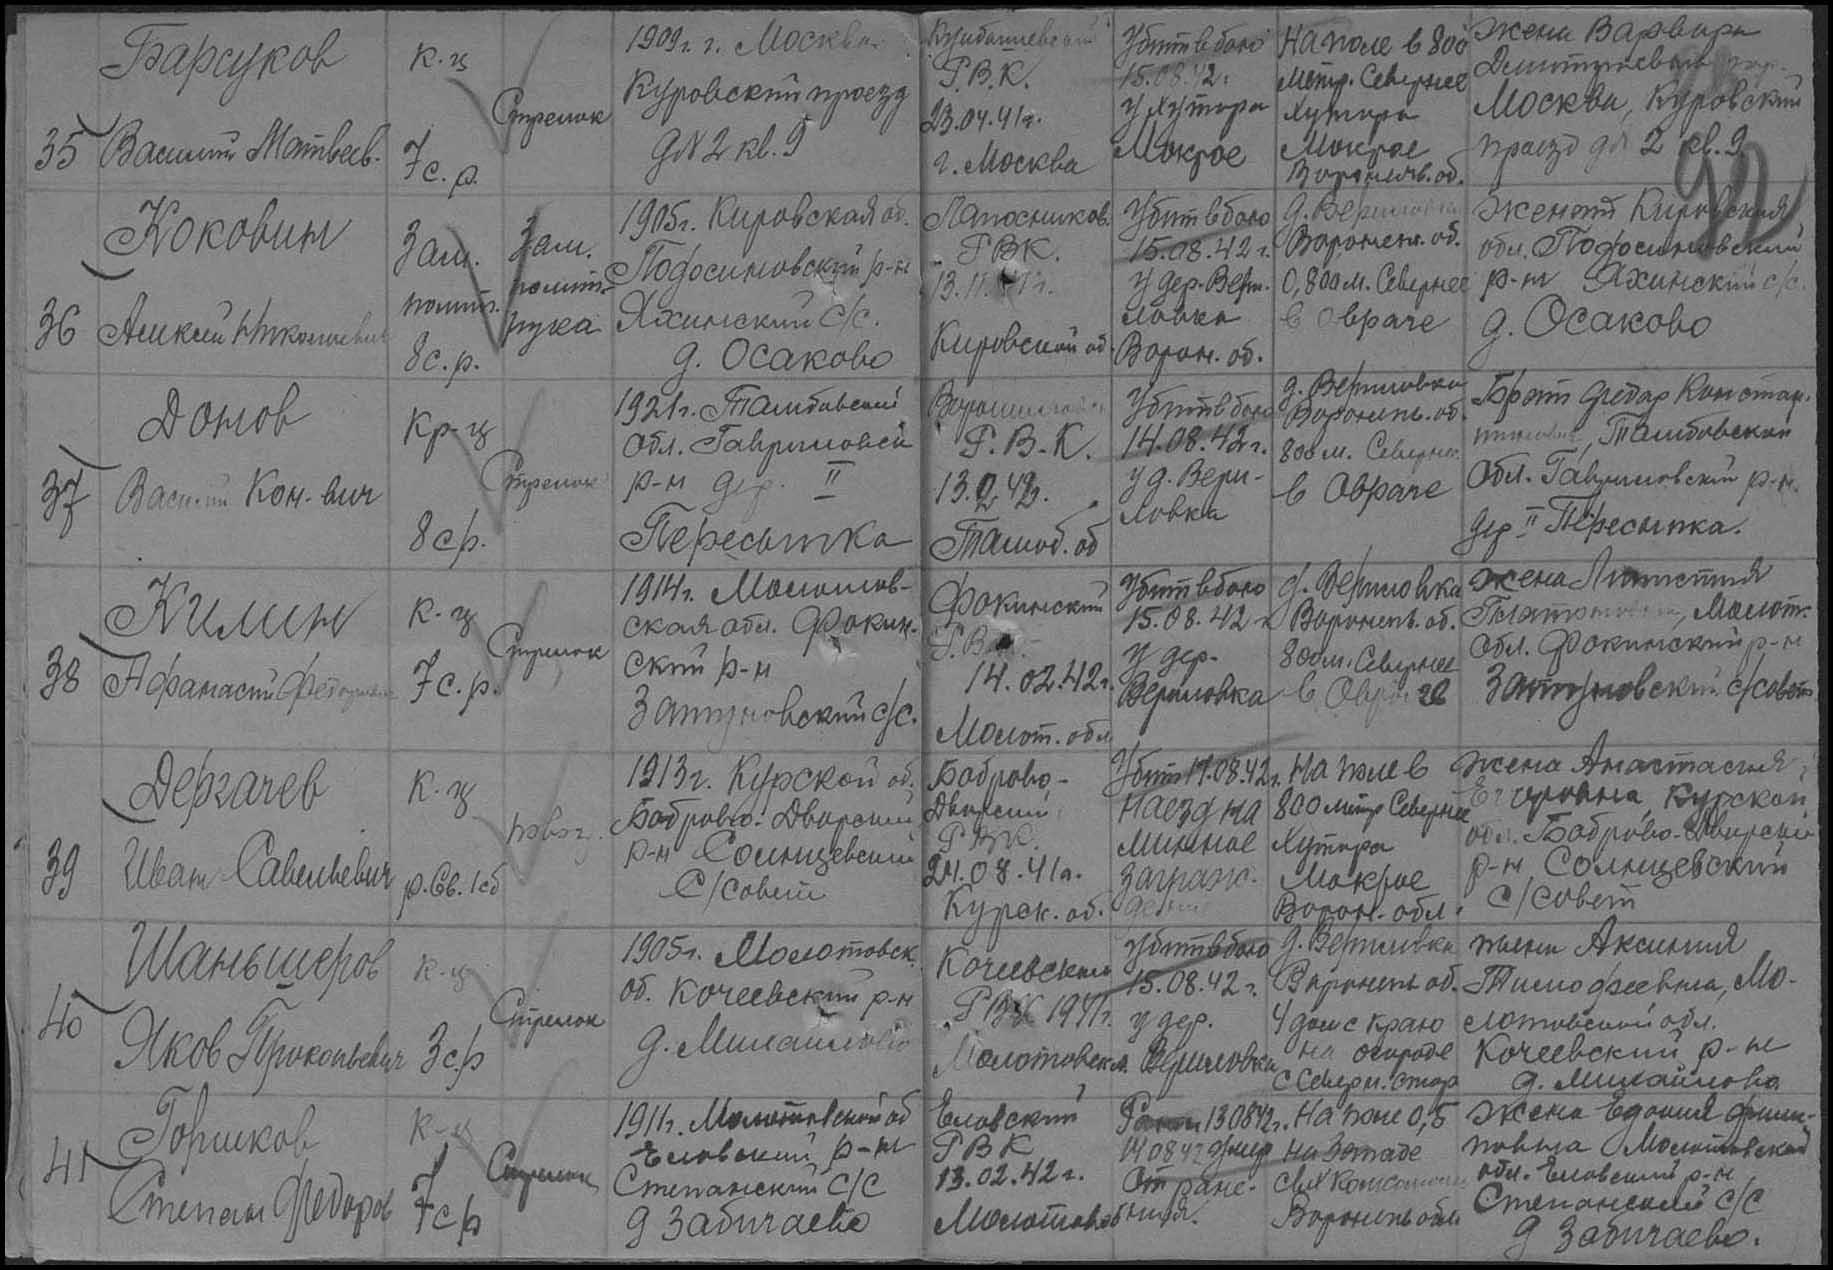 35
Барсуков
Василий Матвеев.
к-ц
7 с.р.
Стрелок
1909г. г. Москва
Куровский проезд
д№2 кв. 9
Куйбышевский
Р.В.К.
23.04.41г.
г. Москва
Убит в бою
15.08.42г.
у хутора
Мокрое
На поле в 800
метр. Севернее
хутора
Мокрое
Воронежс. об.
жена Варвара
Дмитриевна гор.
Москва, Куровский
проезд д№ 2 кв. 9
92
36
Коковин
Алексей Николаевич
Зам.
полит.
8 с.р.
Зам.
полит-
рука
1905г. Кировская об.
Подосиновский р-н
Яхинский с/с.
д. Осаково
РВК.
13.11.41г.
Кировской об.
Убит в бою
15.08.42г.
у дер. Верт-
ловка
Ворон. об.
Воронеж. об.
0,800м. Севернее
в овраге
жена Кировская
обл. Подосиновский
р-н Яхинский с/с.
д. Осаково
37
Донов
Васи-ий Кон-вич
Кр-ц
8 с/р.
Стрелок
1921г. Тамбовский
обл. Гавриловск
р-н дер. II
Пересыпка
Р.В.К.
Тамб. об
Убит в бою
14.08.42г.
у д. Вери-
ловка
д. Вериловка
Воронеж. об.
800м. Севернее
в Овраге
Брат Федор Констан.
тинович, Тамбовской
обл. Гавриловский р-н.
дер II Пересыпка.
38
Килин
Афанасий Федорович
к-ц
7 с.р.
Стрелок
1914г. Молотов-
ская обл. Фокин-
ский р-н
Затуновский с/с.
Фокинский
Р.В.К.
14.02.42г.
Молот. обл
Убит в бою
15.08.42г
у дер.
Вериловка
д. Вериловка
Воронеж. об.
800м. Севернее
в Овраге
жена
Молот.
обл. Фокинский р-н
Затуновский с/совет
39
Дергачев
Иван Савельевич
к-ц
р. Св. 1сб
повоз.
1913г. Курской об.
Боброво-Дворский
р-н Солнцевский
с/совет
Боброво-
Дворский
РВК.
24.08.41г.
Курск. об.
Убит 17.08.42г.
Наезд на
минное
загражс-
дение
На поле в
800 метр Севернее
Хутора
Мокрое
Ворон. обл.
жена Анастасия
Егоровна Курской
обл. Боброво-Дворский
р-н Солнцевский
с/совет
40
Шаньшеров
Яков Прокопьевич
к-ц
3 с/р
Стрелок
1905г. Молотовск.
об. Кочевский р-н
д. Михайлово
Кочевский
РВК 1941г.
Молотовск.
Убит в бою
15.08.42г.
у дер.
Вериловка
д. Вериловка
Воронеж об.
4 дом с краю
на огороде
с Северн. стор
жена Аксиния
Тимофеевна, Мо-
лотовской обл.
Кочевский р-н
д. Михайлово
41
Горшков
Степан Федоров
к-ц
7 с/р
Стрелок
1911г. Молотовской об
Еловский р-н
Степанский с/с
д Забигаево
Еловский
РВК
13.02.42г.
Ранен 130842г.
140842 умер
От ране-
ния.
На поле 0,5
на Западе
Воронеж обл
жена
Молотовской
обл. Еловский р-н
Степанский с/с
д Забигаево.